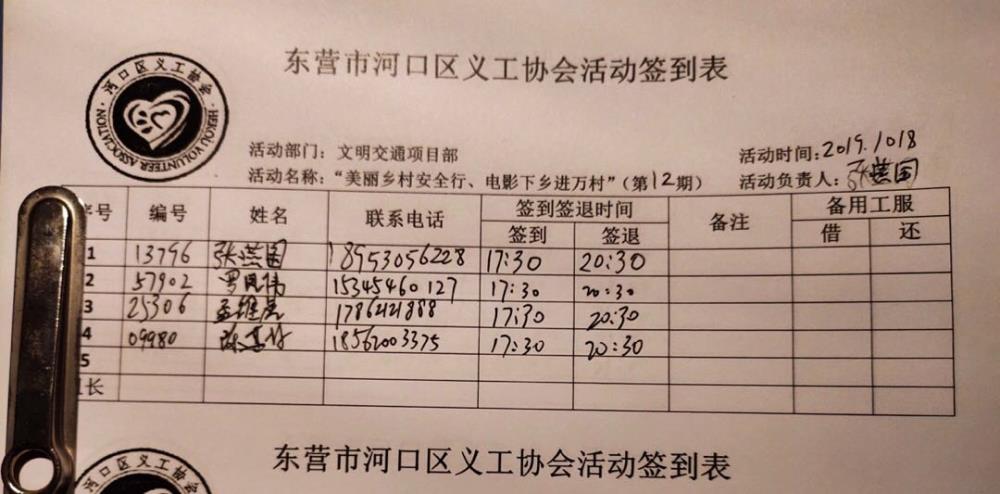 东营市河口区义工协会活动签到表
河口区义工协会
HEKOU VOLUNTEER ASSOCIATION
活动部门：文明交通项目部
活动时间：2019.1018
活动名称：“美丽乡村安全行、电影下乡进万村”（第12期）
活动负责人：张燕国
序号 编号 姓名 联系电话 签到签退时间 备注 备用工服
签到 签退 借 还
1 13796 张燕国 18953056228 17:30 20:30
2 57902 15345460127 17:30 20:30
3 25306 孟维 17:30 20:30
4 09980 18562003375 17:30 20:30
5
组长
东营市河口区义工协会活动签到表
河口区义工协会